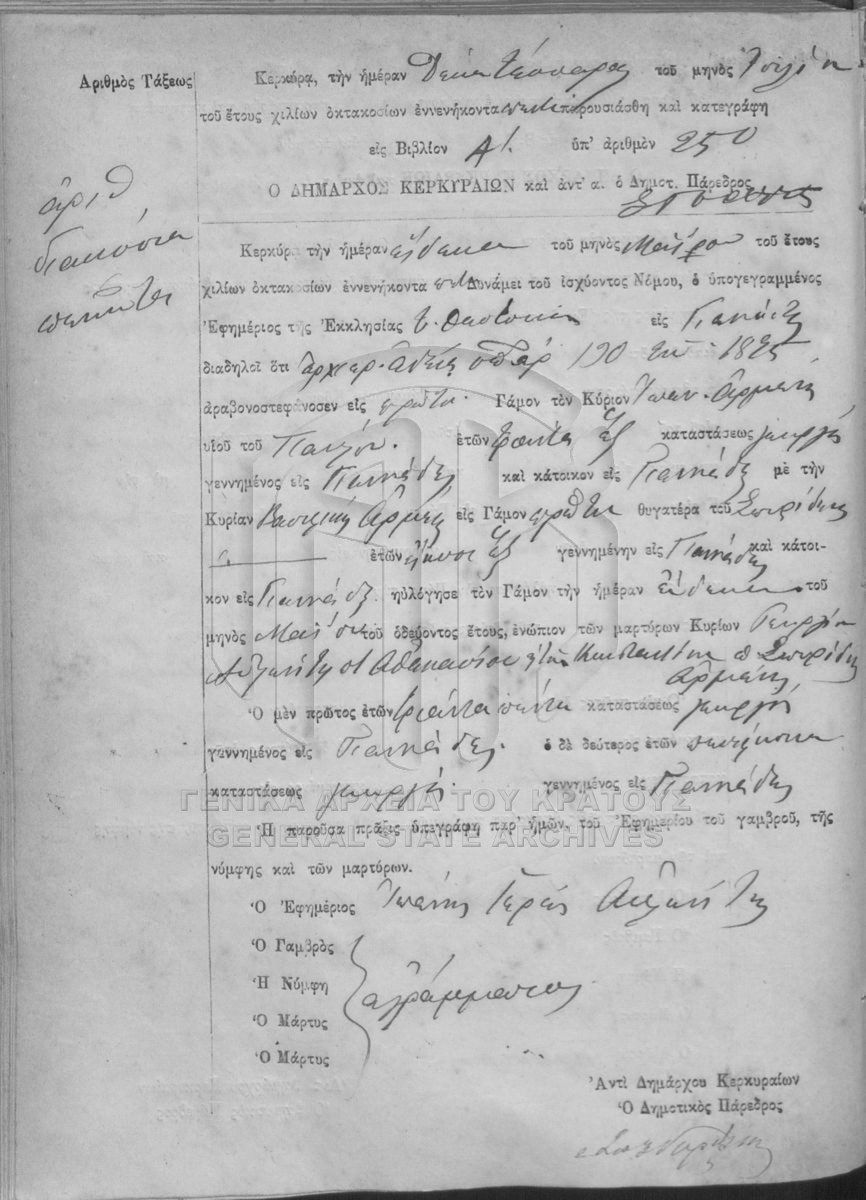 Ἀριθμὸς Τάξεως
Κερκύρα, τὴν ἡμέραν Δεκα τέσσαρας τοῦ μηνὸς Ἰουλίου
τοῦ ἔτους χιλίων ὀκτακοσίων ἐννενήκοντα πέντε παρουσιάσθη καὶ κατεγράφη
εἰς Βιβλίον Α'. ὑπ' ἀριθμὸν 250
Ὁ ΔΗΜΑΡΧΟΣ ΚΕΡΚΥΡΑΙΩΝ καὶ ἀντ' α. ὁ Δημοτ. Πάρεδρος
ἀριθ
διακόσια
πενῆντα
Κερκύρα τὴν ἡμέραν ἕνδεκα τοῦ μηνὸς Μαΐου τοῦ ἔτους
χιλίων ὀκτακοσίων ἐννενήκοντα πέντε Δυνάμει τοῦ ἰσχύοντος Νόμου, ὁ ὑπογεγραμμένος
Ἐφημέριος τῆς Ἐκκλησίας εἰς Γιαννάδες
διαδηλοῖ ὅτι ἀρχιερ. ἀδείας ὑπ' ἀρ 190 1895
ἀραβονοστεφάνοσεν εἰς πρῶτον Γάμον τὸν Κύριον Ἰωάν. Ἀρμένη
υἱοῦ τοῦ Παύλου. ἐτῶν τριάντα ἕξ καταστάσεως γεωργός
γεννημένος εἰς Γιαννάδες καὶ κάτοικον εἰς Γιαννάδες μὲ τὴν
Κυρίαν Βασιλικὴν Ἀρμένη εἰς Γάμον πρῶτον θυγατέρα τοῦ Σπυρίδωνος
ἐτῶν εἴκοσι ἕξ γεννημένην εἰς Γιαννάδες καὶ κάτοι-
κον εἰς Γιαννάδες ηὐλόγησε τὸν Γάμον τὴν ἡμέραν ἕνδεκα τοῦ
μηνὸς Μαΐου τοῦ ὁδεύοντος ἔτους, ἐνώπιον τῶν μαρτύρων Κυρίων Γεωργίου
Αὐλωνίτη Ἀθανασίου Κωνσταντίνου Σπυρίδωνος
Ἀρμένη
Ὁ μὲν πρῶτος ἐτῶν τριάντα πέντε καταστάσεως γεωργός
γεννημένος εἰς Γιαννάδες. ὁ δὲ δεύτερος ἐτῶν
καταστάσεως γεωργός. γεννημένος εἰς Γιαννάδες
ΓΕΝΙΚΑ ΑΡΧΕΙΑ ΤΟΥ ΚΡΑΤΟΥΣ
GENERAL STATE ARCHIVES
Ἡ παροῦσα πρᾶξις ὑπεγράφη παρ' ἡμῶν, τοῦ Ἐφημερίου τοῦ γαμβροῦ, τῆς
νύμφης καὶ τῶν μαρτύρων.
Ὁ Ἐφημέριος Ἰωάννης Ἱερεὺς Αὐλωνίτης
Ὁ Γαμβρὸς
Ἡ Νύμφη
ἀγράμματοι
Ὁ Μάρτυς
Ὁ Μάρτυς
Ἀντὶ Δημάρχου Κερκυραίων
Ὁ Δημοτικὸς Πάρεδρος